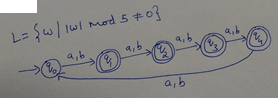 L = {w | |w| mod 5 ≠ 0}
q0 a,b q1 a,b q2 a,b q3 a,b q4
a,b